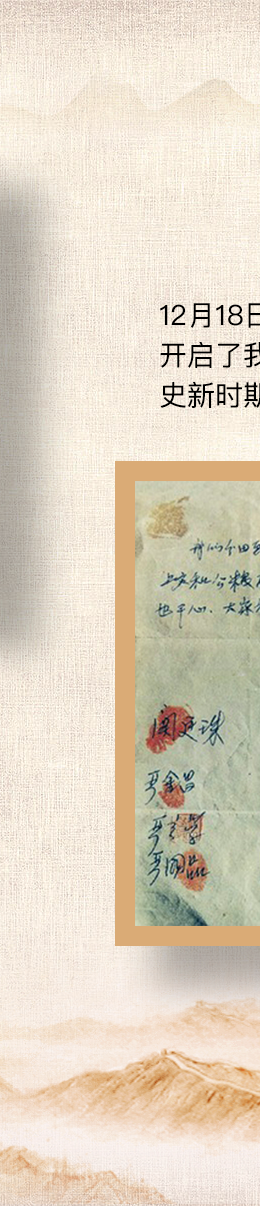 12月18日
开启了我
史新时期
上交和公粮
也干心、大家
关廷珠
严金昌
严立学
严国品